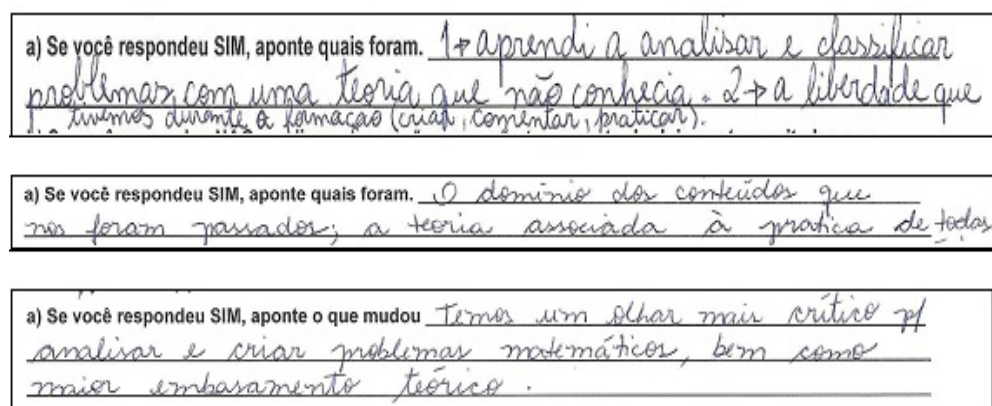 a) Se você respondeu SIM, aponte quais foram. 1→ aprendi a analisar e classificar
problemas, com uma teoria que não conhecia. 2→ a liberdade que
tivemos durante a formação (criar, comentar, praticar).
a) Se você respondeu SIM, aponte quais foram. O domínio dos conteúdos que
nos foram passados; a teoria associada à pratica de todas
a) Se você respondeu SIM, aponte o que mudou Temos um olhar mais crítico p/
analisar e criar problemas matemáticos, bem como
maior embasamento teórico.